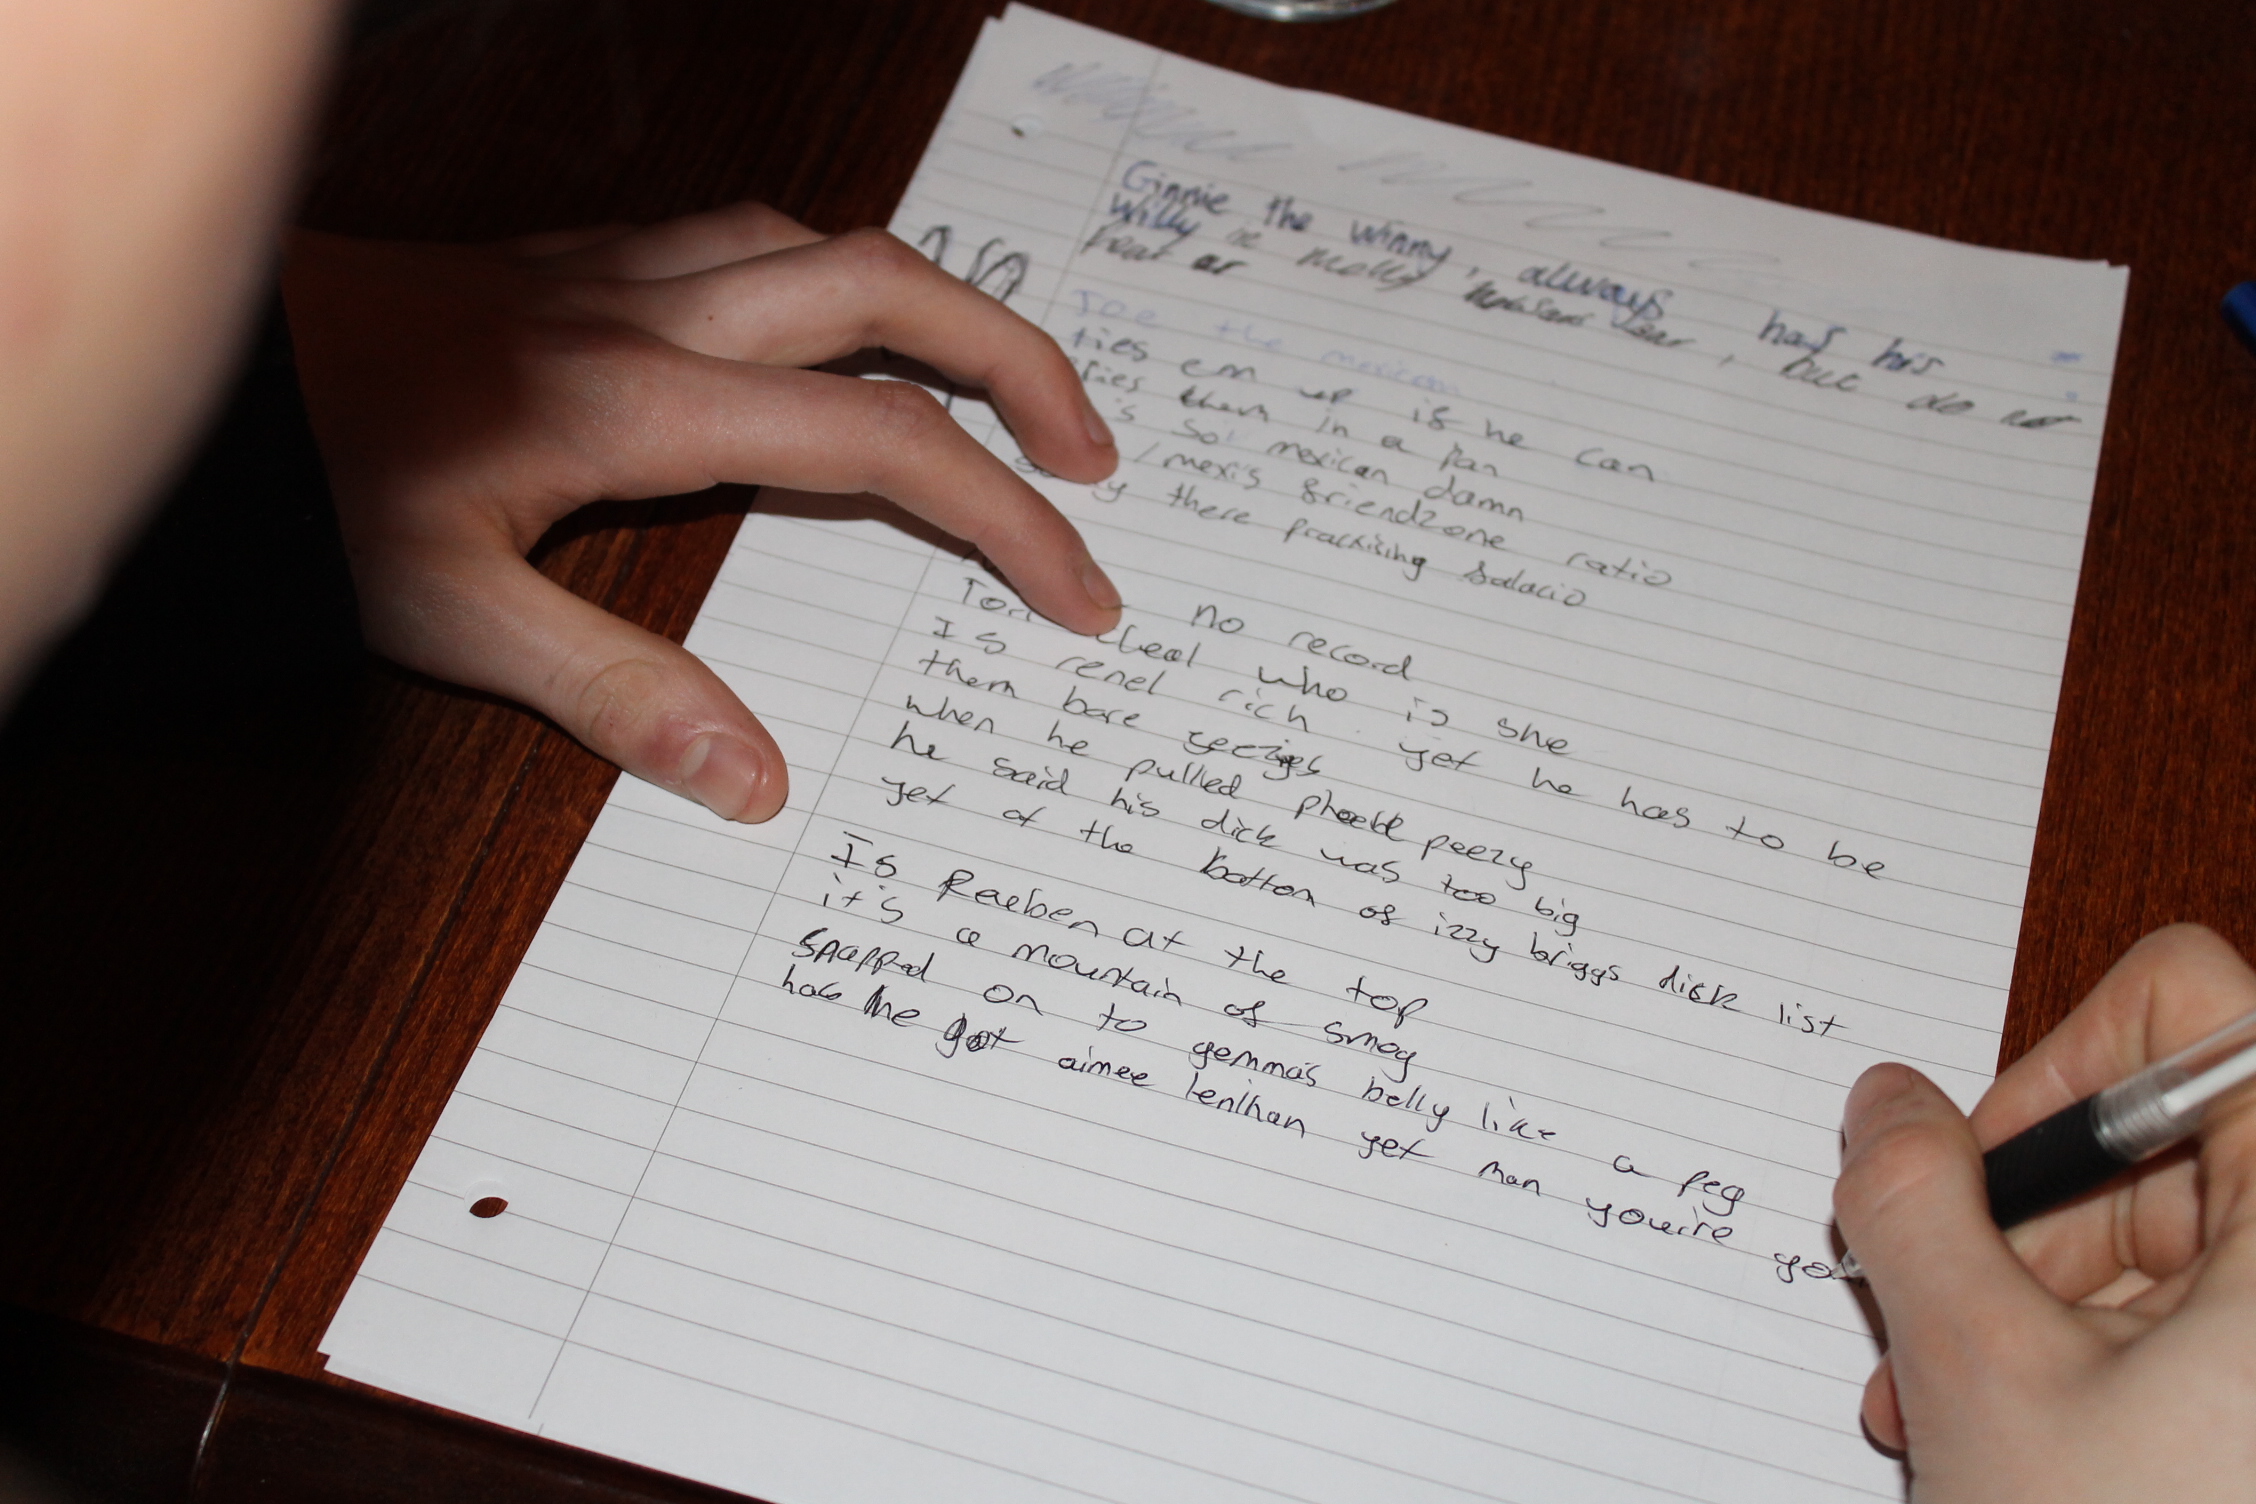 Ginnie the winny, always has his
Willy in molly, but do not
fear or
Joe the mexican
ties em up if he can
fries them in a pan
's so mexican damn
/mexi's friendzone ratio
there practising salacio
no record
Tori who is she
Is renel rich yet he has to be
them bare yeezies
when he pulled pheebz peezy
he said his dick was too big
yet at the bottom of izzy briggs dick list
Is Reuben at the top
it's a mountain of smog
snapped on to gemma's belly like a peg
has he got aimee lenihan yet man you're go